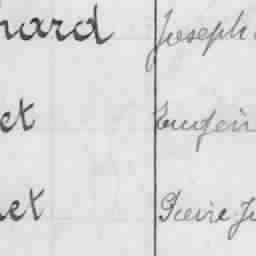 hard Joseph
et Eugéni
et Pierre Ju